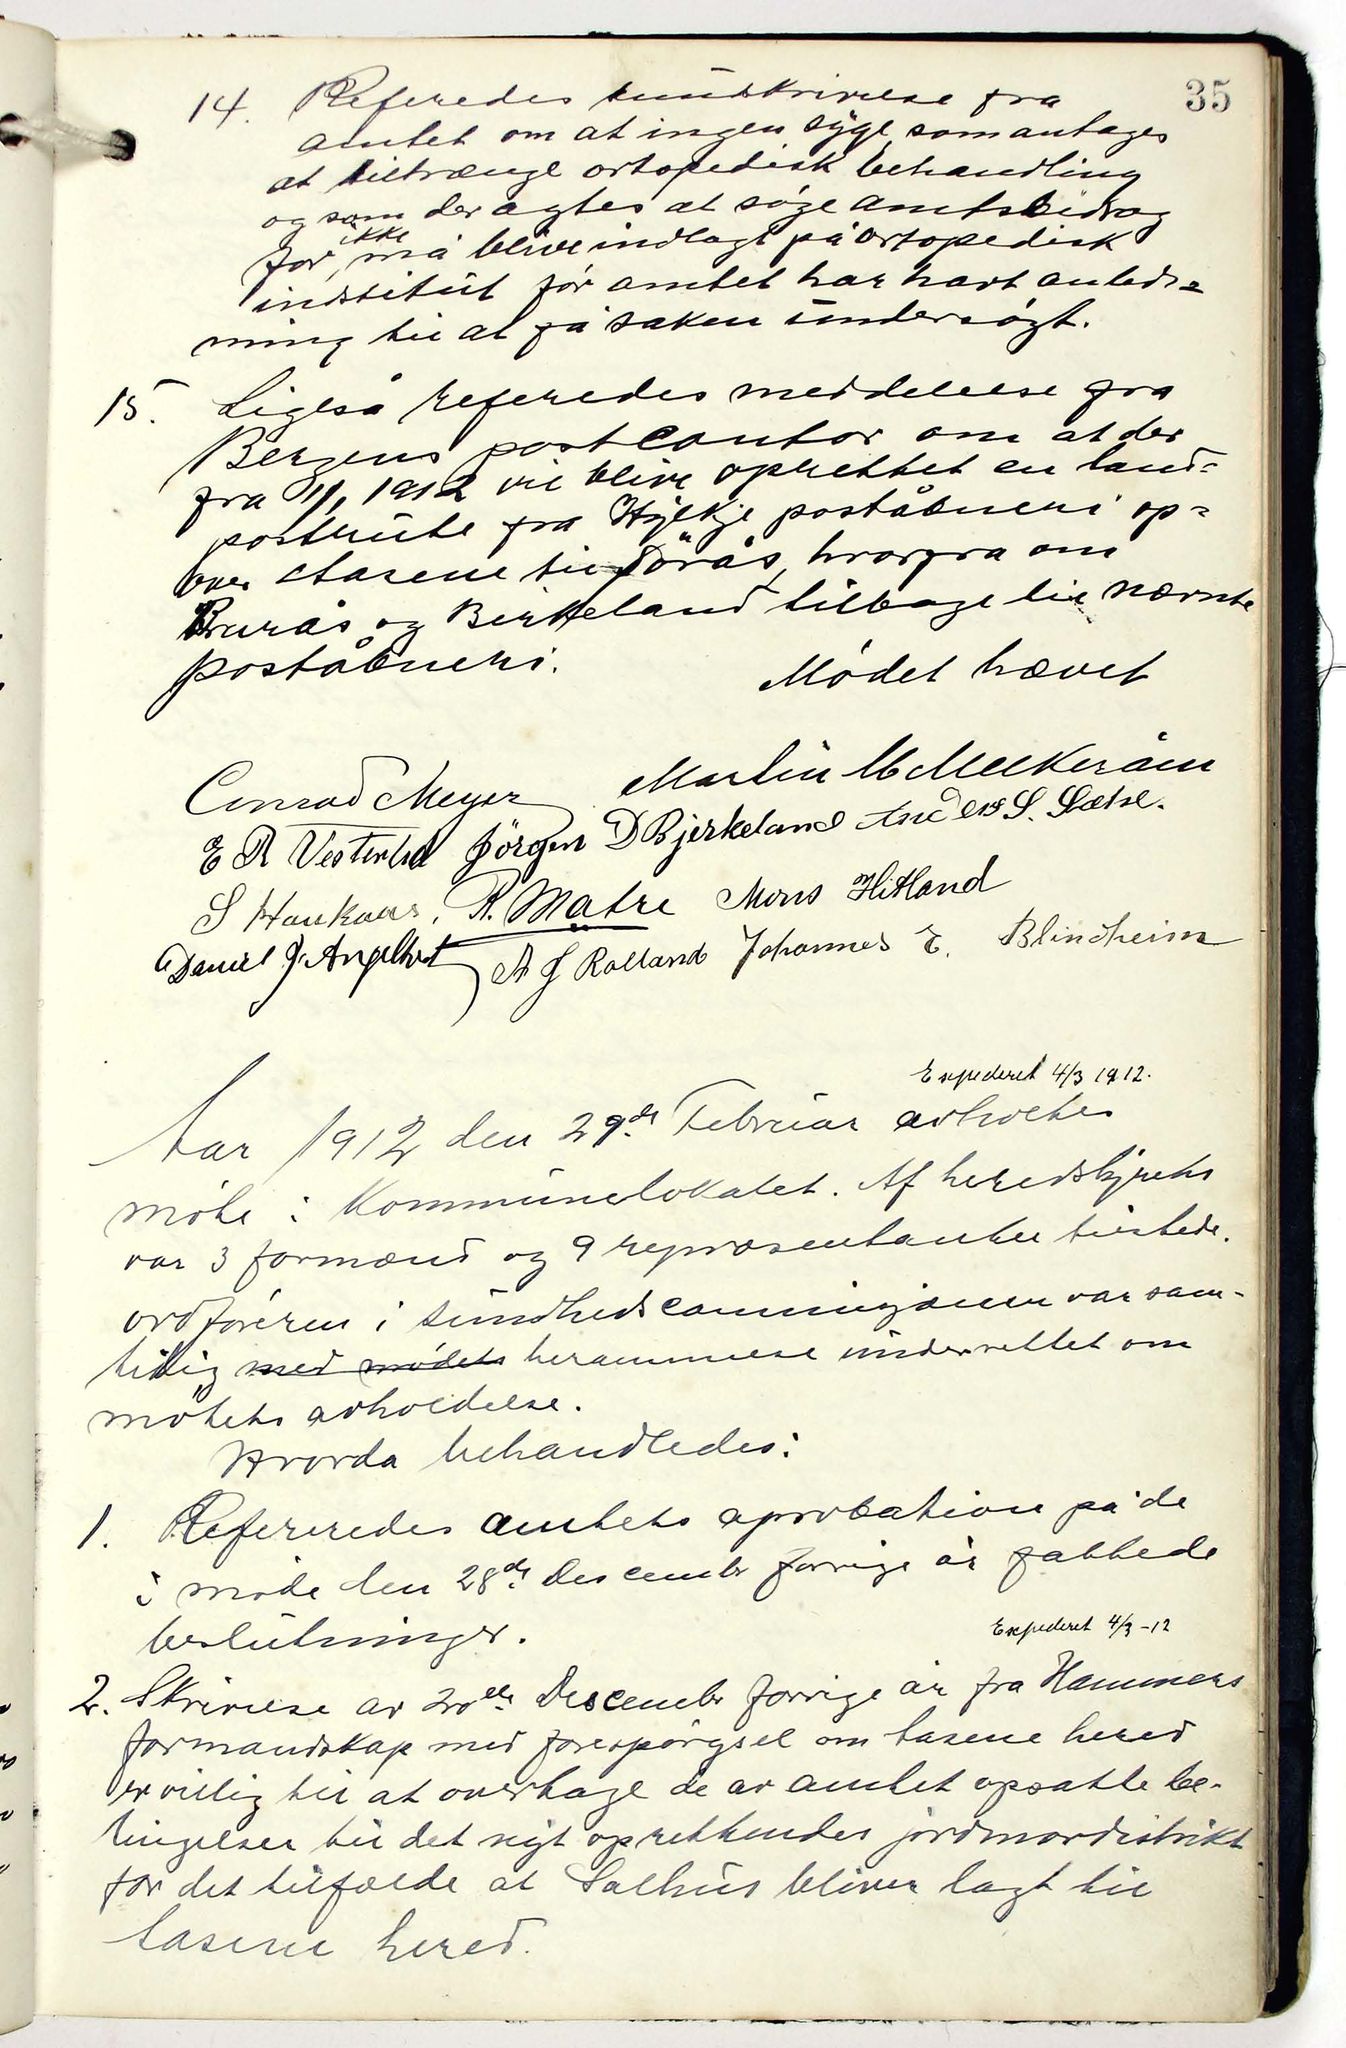 35
14. Referedes rundskrivelse fra
amtet om at ingen syge, som antages
at tiltrænge ortopedisk behandling
og som der agtes at söge amtsbidrag
for, ikke må blive indlagt på ortopedisk
institut för amtet har havt anled=
ning til at få saken undersögt.
15. Ligeså referedes meddelelse fra
Bergens postcontor om at der
fra 1/1 1912 vil blive oprettet en land=
postrute fra Hylkje poståbneri op=
over Aasene til Törås, hvorfra om
Brurås og Birkeland tilbage til nævnte
poståbneri.
Mödet hævet
Conrad Meyer Martin M Melkeråen
E R Vestrheim Jörgen D Bjerkeland Anders S. Sætre.
S Haukaas. R. Matre Mons Hitland
Daniel J. Angeltvet A J Rolland Johannes E. Blindheim
Expederet 4/3 1912.
Aar 1912 den 29de Februar avholtes
möte i Kommunelokalet. Af heredstyrets
var 3 formænd og 9 repræsentanter tilstede.
ordföreren i sundhedscommisjonen var sam-
tidig med mödets berammelse underrettet om
mötets avholdelse.
Hvorda behandledes:
1. Refereredes amtets aprobation på de
i möde den 28de December forrige år fattede
beslutninger.
Expederet 4/3 -12
2. Skrivelse av 20de Descember forrige år fra Hammers
formandskap med forespörgsel om Aasene hered
er villig til at overtage de av amtet opsatte be-
tingelser til det nyt oprettendes jordmordistrikt
for det tilfælde at Salhus bliver lagt til
Aasene hered.